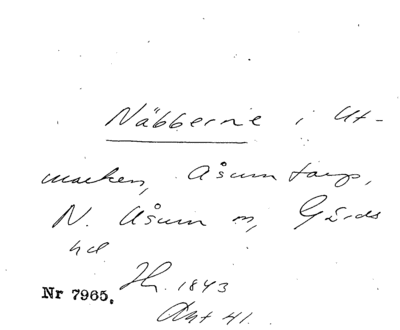 Näbberne i Ut-
marken, Åsumtorp,
N. Åsum sn, Gärds
hd
Nr 7965.
1843
Akt 41.